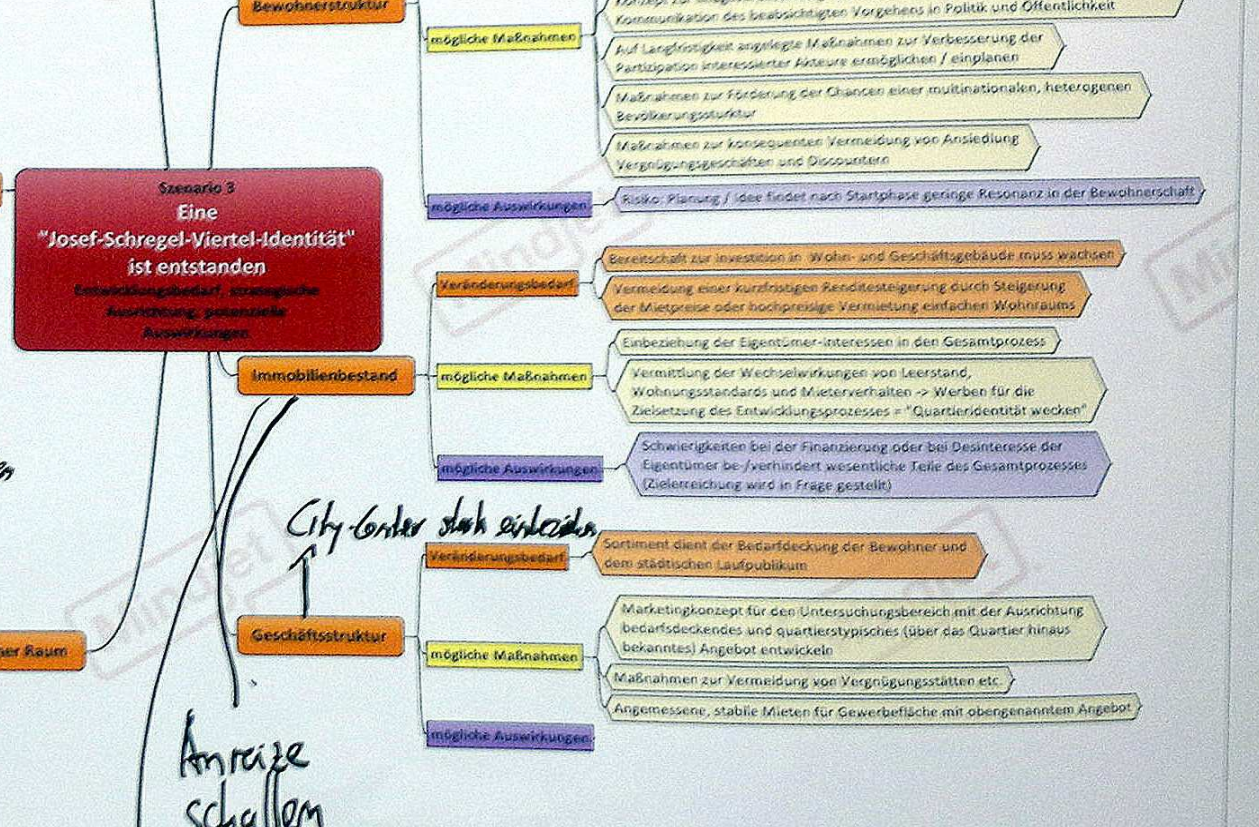 Bewohnerstruktur
mögliche Maßnahmen
Kommunikation des beabsichtigten Vorgehens in Politik und Öffentlichkeit
Auf Langfristigkeit angelegte Maßnahmen zur Verbesserung der
Partizipation interessierter Akteure ermöglichen / einplanen
Maßnahmen zur Förderung der Chancen einer multinationalen, heterogenen
Bevölkerungssturktur
Maßnahmen zur konsequenten Vermeidung von Ansiedlung
Vergnügungsgeschäften und Discountern
mögliche Auswirkungen
Risiko: Planung / Idee findet nach Startphase geringe Resonanz in der Bewohnerschaft
Szenario 3
Eine
"Josef-Schregel-Viertel-Identität"
ist entstanden
Entwicklungsbedarf, strategische
Ausrichtung, potenzielle
Auswirkungen
Immobilienbestand
Veränderungsbedarf
Bereitschaft zur Investition in Wohn- und Geschäftsgebäude muss wachsen
Vermeidung einer kurzfristigen Renditesteigerung durch Steigerung
der Mietpreise oder hochpreisige Vermietung einfachen Wohnraums
mögliche Maßnahmen
Einbeziehung der Eigentümer-Interessen in den Gesamtprozess
Vermittlung der Wechselwirkungen von Leerstand,
Wohnungsstandards und Mieterverhalten -> Werben für die
Zielsetzung des Entwicklungsprozesses = "Quartieridentität wecken"
mögliche Auswirkungen
Schwierigkeiten bei der Finanzierung oder bei Desinteresse der
Eigentümer be-/verhindert wesentliche Teile des Gesamtprozesses
(Zielerreichung wird in Frage gestellt)
City-Center stark einbeziehen
Geschäftsstruktur
Veränderungsbedarf
Sortiment dient der Bedarfdeckung der Bewohner und
dem städtischen Laufpublikum
mögliche Maßnahmen
Marketingkonzept für den Untersuchungsbereich mit der Ausrichtung
bedarfsdeckendes und quartierstypisches (über das Quartier hinaus
bekanntes) Angebot entwickeln
Maßnahmen zur Vermeidung von Vergnügungsstätten etc.
Angemessene, stabile Mieten für Gewerbefläche mit obengenanntem Angebot
mögliche Auswirkungen
er Raum
Anreize
schaffen
Mindjet
Mindjet